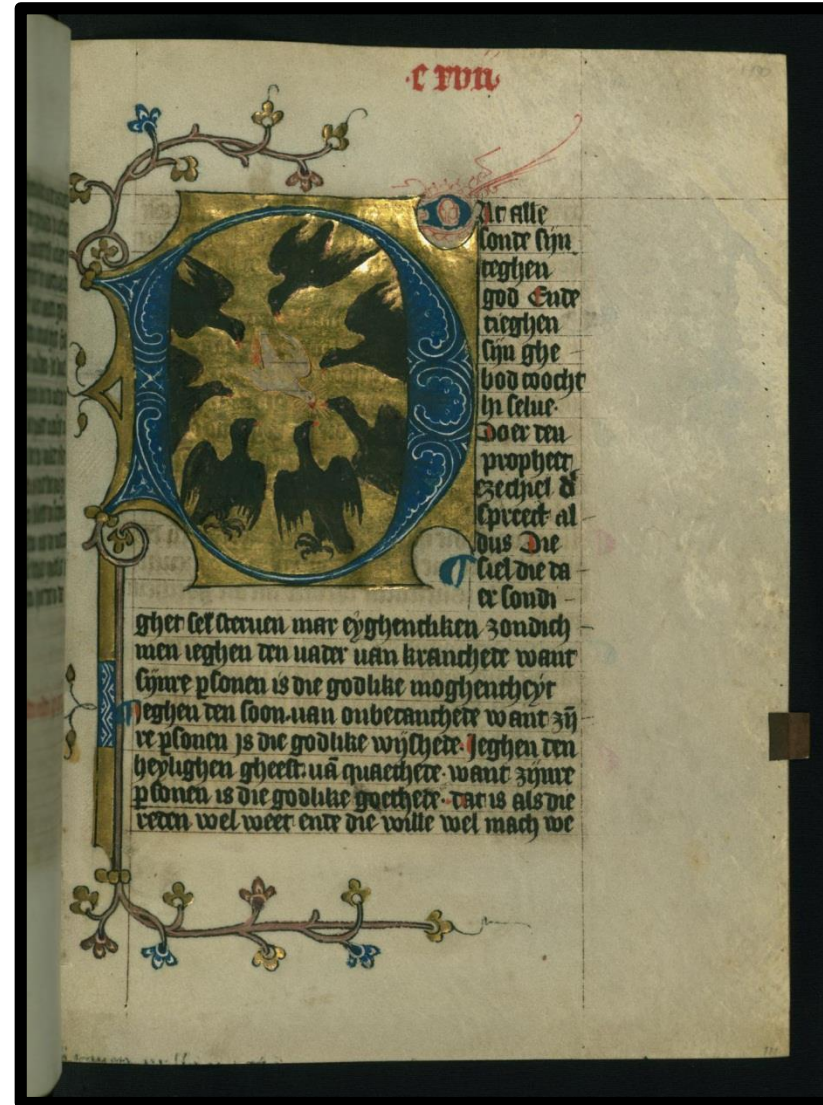 ·c xvii·
Ar alle
sonde sijn
teghen
god Ende
tieghen
sijn ghe
bod
hi selue·
Doer den
prophete
ezechiel d
spreect al
dus Die
siel die da
er sondi
ghet sel steruen mar eyghentliken zondich
men ieghen den uader uan kranchede want
sijnre psonen is die godlike moghentheyt
Jeghen den soon uan onbecanthede want zij
re psonen js die godlike wijshede· Jeghen den
heylighen gheest· uā quaethede· want zijnre
psonen is die godlike goethede· dat is als die
reden wel weet ende die wille wel mach we